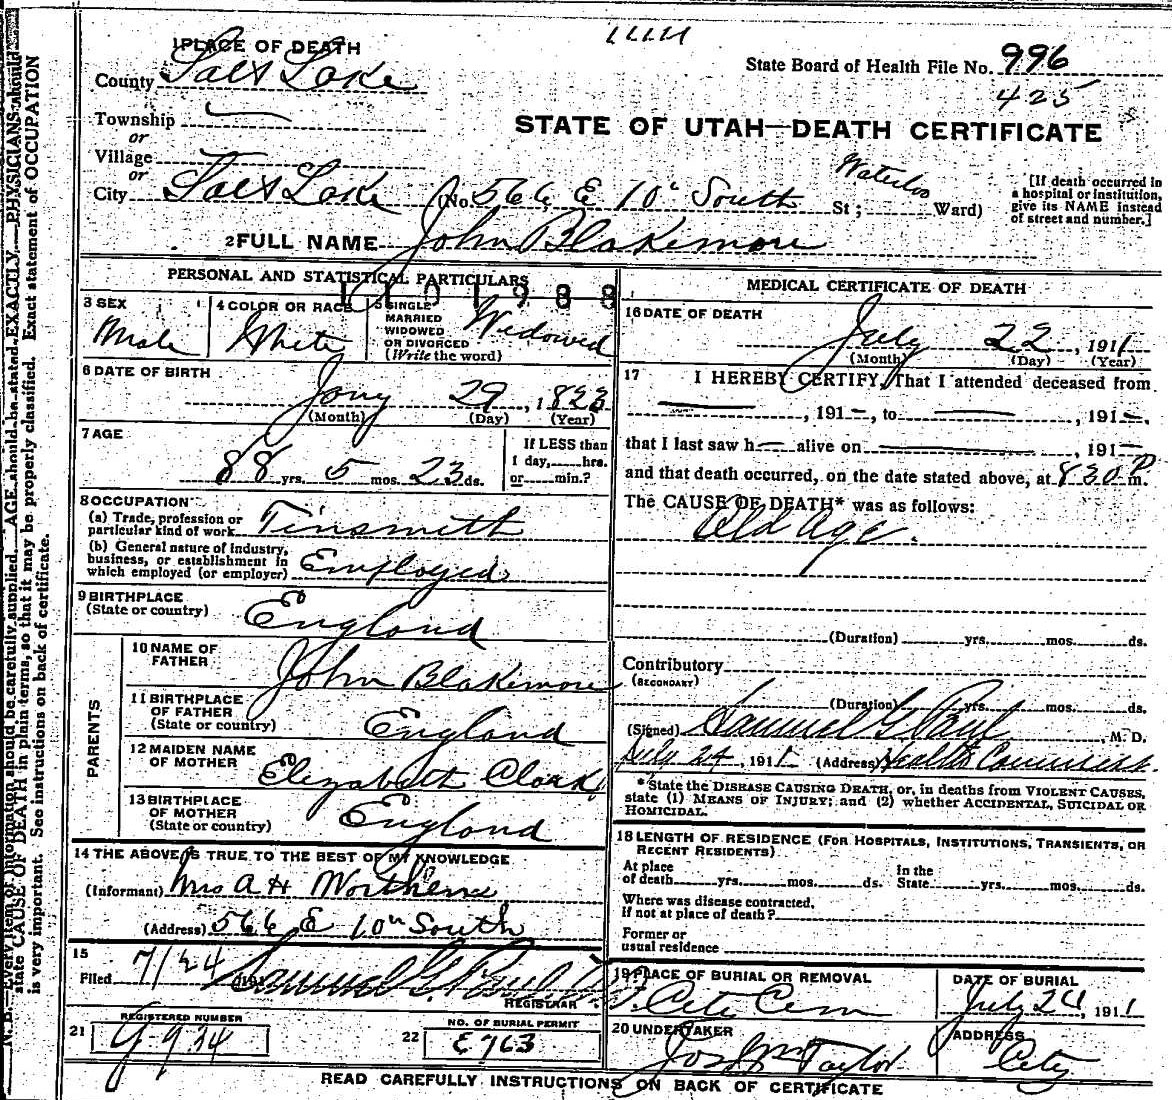 1 PLACE OF DEATH
County Salt Lake
Township
or
Village
or
City Salt Lake (No. 566 E 10" South St; Waterloo Ward)
State Board of Health File No. 996
425
STATE OF UTAH—DEATH CERTIFICATE
[If death occurred in
a hospital or institution,
give its NAME instead
of street and number.]
2 FULL NAME John Blakemore
PERSONAL AND STATISTICAL PARTICULARS
3 SEX
Male
4 COLOR OR RACE
White
5 SINGLE
MARRIED
WIDOWED
OR DIVORCED
(Write the word)
Widowed
6 DATE OF BIRTH
Jany 29, 1823
(Month) (Day) (Year)
7 AGE
88 yrs. 5 mos. 23 ds.
If LESS than
1 day, hrs.
or min.?
8 OCCUPATION
(a) Trade, profession or
particular kind of work Tinsmith
(b) General nature of industry,
business, or establishment in
which employed (or employer) Employed
9 BIRTHPLACE
(State or country) England
PARENTS
10 NAME OF
FATHER John Blakemore
11 BIRTHPLACE
OF FATHER
(State or country) England
12 MAIDEN NAME
OF MOTHER Elizabeth Clark
13 BIRTHPLACE
OF MOTHER
(State or country) England
14 THE ABOVE IS TRUE TO THE BEST OF MY KNOWLEDGE
(Informant) Mrs A H
(Address) 566 E 10" South
15
Filed 7/24 191 Samuel G. Paul
REGISTRAR
21 REGISTERED NUMBER
22 NO. OF BURIAL PERMIT
E763
MEDICAL CERTIFICATE OF DEATH
16 DATE OF DEATH
July 22, 1911
(Month) (Day) (Year)
17 I HEREBY CERTIFY, That I attended deceased from
, 191 , to , 191
that I last saw h alive on 191
and that death occurred, on the date stated above, at 830 P m.
The CAUSE OF DEATH* was as follows:
Old Age.
(Duration) yrs. mos. ds.
Contributory
(SECONDARY)
(Duration) yrs. mos. ds.
(Signed) Samuel G Paul, M. D.
July 24, 1911 (Address) Health Commiss.
*State the DISEASE CAUSING DEATH, or, in deaths from VIOLENT CAUSES,
state (1) MEANS OF INJURY; and (2) whether ACCIDENTAL, SUICIDAL OR
HOMICIDAL.
18 LENGTH OF RESIDENCE (FOR HOSPITALS, INSTITUTIONS, TRANSIENTS, OR
RECENT RESIDENTS)
At place
of death yrs. mos. ds.
In the
State yrs. mos. ds.
Where was disease contracted,
if not at place of death?
Former or
usual residence
19 PLACE OF BURIAL OR REMOVAL
City Cem
DATE OF BURIAL
July 24, 1911
20 UNDERTAKER
Jos Wm Taylor
ADDRESS
City
READ CAREFULLY INSTRUCTIONS ON BACK OF CERTIFICATE
N. B.—Every item of information should be carefully supplied. AGE should be stated EXACTLY. PHYSICIANS should
state CAUSE OF DEATH in plain terms, so that it may be properly classified. Exact statement of OCCUPATION
is very important. See instructions on back of certificate.